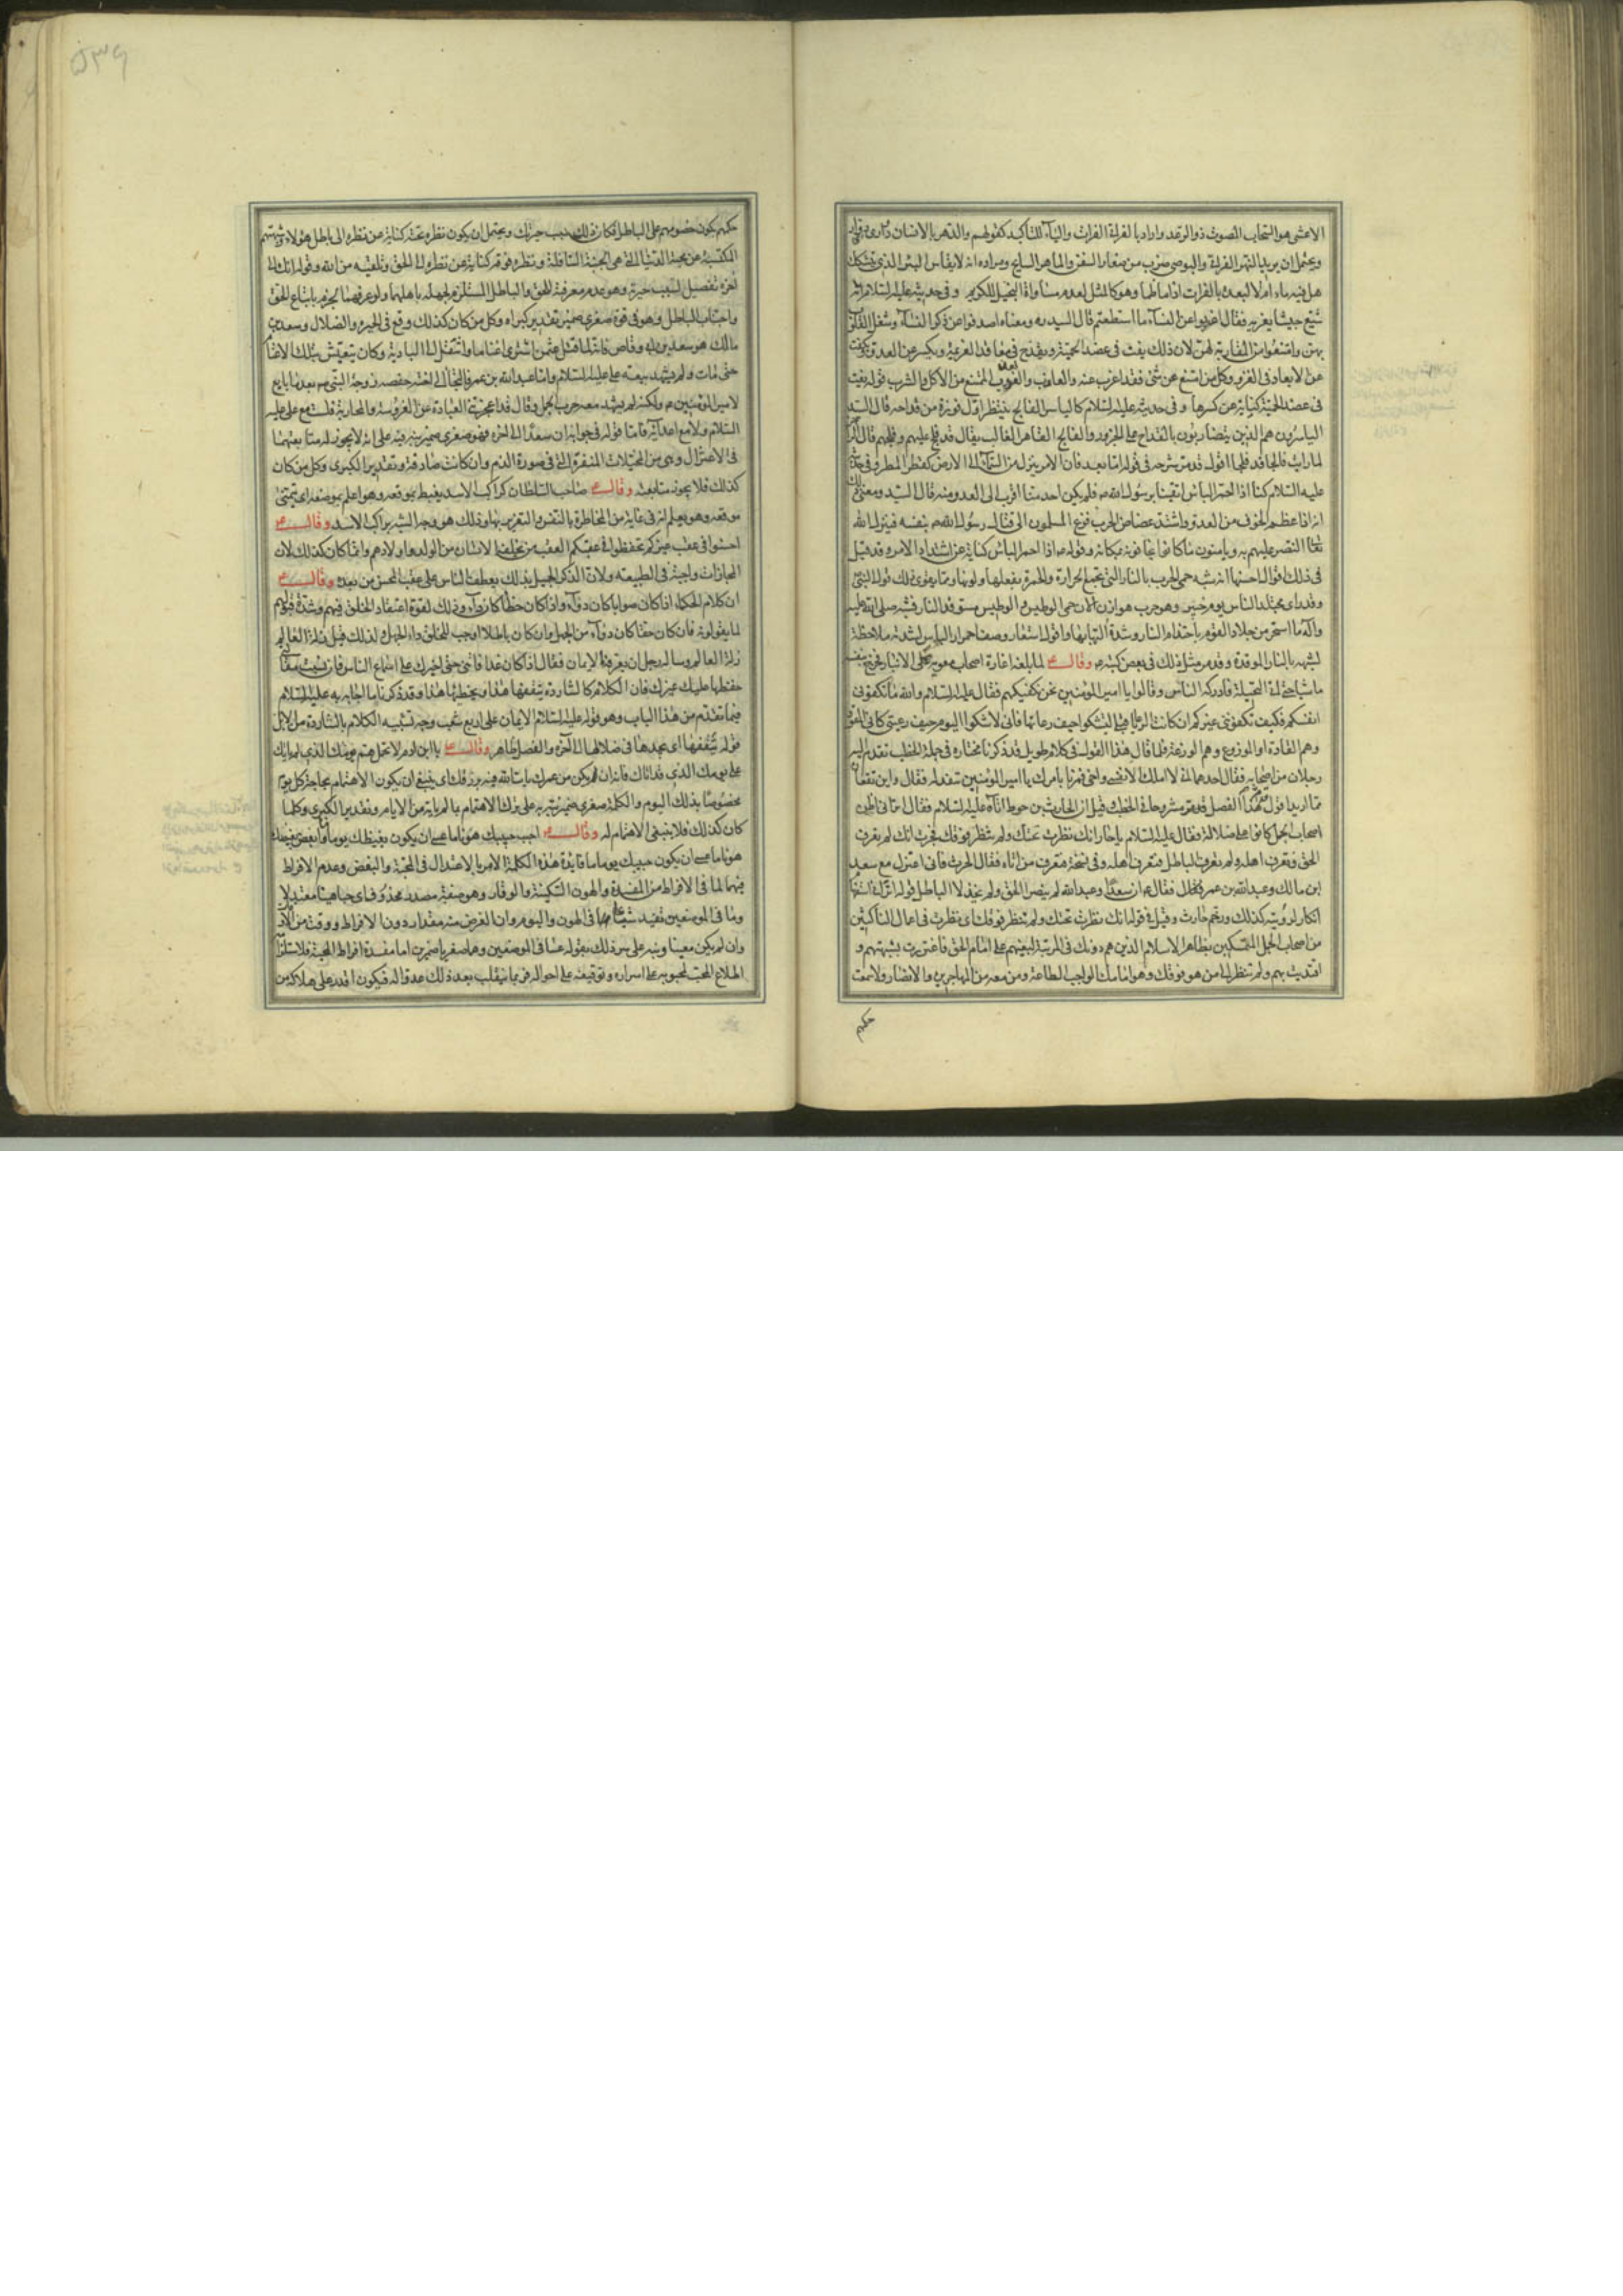 الاعشى هو السحاب المصوت ذو الرعد واراد بالفراتى الفرات والياء للتاكيد كقولهم والدهر بالانسان دوارى
ويحتمل ان يريد النهر الفراتى والبوصى ضرب من صغار السفن والماهر السابح ومراده انه لا يقاس البئر الذى يشك
هل فيه ماء ام لا لبعده بالفرات اذا ما طما وهو كالمثل لعدم مساواة البخيل للكريم وفى حديثه عليه السلام انه
شيّع جيشا يغزيه فقال اعذبوا عن النساء ما استطعتم قال السيد ره ومعناه اصدفوا عن ذكر النساء وشغل القلوب
بهن وامتنعوا من المقاربة لهن لان ذلك يفت فى عضد الحمية ويقدح فى معاقد العزيمة ويكسر عن العدو ويلفت
عن الابعاد فى الغزو وكل من امتنع عن شئ فقد اعزب عنه والعازب والعزوب الممتنع من الاكل والشرب قوله يفت
فى عضد الحمية كناية عن كسرها وفى حديثه عليه السلام كالياسر الفالج ينتظر اول فوزة من قداحه قال السيد
الياسرون هم الذين يتضاربون بالقداح على الجزور والفالج القاهر الغالب يقال قد فلج عليهم وفلجهم قال الراجز
لما رايت فالجا قد فلجا اقول قد مر شرحه فى قوله اما بعد فان الامر ينزل من السماء الى الارض كقطر المطر وفى حديثه
عليه السلام كنا اذا احمر الباس اتقينا برسول الله ص فلم يكن احد منا اقرب الى العدو منه قال السيد ومعنى ذلك
انه اذا عظم الخوف من العدو واشتد عضاض الحرب فزع المسلمون الى قتال رسول الله ص بنفسه فينزل الله
تعالى النصر عليهم به ويامنون ما كانوا يخافونه بمكانه وقوله اذا احمر الباس كناية عن اشتداد الامر وقد قيل
فى ذلك اقوال احسنها انه شبه حمى الحرب بالنار التى تجمع الحرارة والحمرة بفعلها ولونها ومما يقوى ذلك قول النبى
وقد راى مجتلد الناس يوم حنين وهو حرب هوازن الان حمى الوطيس والوطيس مستوقد النار فشبه صلى الله عليه
وآله ما استحر من جلاد القوم باحتدام النار وشدة التهابها واقول استعار وصف احمرار الباس لشدته ملاحظة
لشبهه بالنار الموقدة وقد مر مثل ذلك فى بعض كتبه وقال ع لما بلغه اغارة اصحاب معوية على الانبار فخرج بنفسه
ماشيا حتى اتى النخيلة فادركه الناس وقالوا يا امير المؤمنين نحن نكفيكهم فقال عليه السلام والله ما تكفونى
انفسكم فكيف تكفوننى غيركم ان كانت الرعايا قبلى لتشكوا حيف رعاتها فانى لاشكوا اليوم حيف رعيتى كانى المقود
وهم القادة او الموزوع وهم الوزعة فلما قال هذا القول فى كلام طويل قد ذكرنا مختاره فى جملة الخطب تقدم اليه
رجلان من اصحابه فقال احدهما انى لا املك الا نفسى واخى فمرنا بامرك يا امير المؤمنين ننفد له فقال واين تقعان
مما اريد اقول هذا الفصل قد مر مشروحا فى الخطب وقيل ان الحارث بن حوط اتاه عليه السلام فقال اترانى اظن
اصحاب الجمل كانوا على ضلالة فقال عليه السلام يا حار انك نظرت تحتك ولم تنظر فوقك فحرت انك لم تعرف
الحق فتعرف اهله ولم تعرف الباطل فتعرف اهله وفى نسخة فتعرف من اتاه فقال الحرث فانى اعتزل مع سعد
ابن مالك وعبد الله بن عمر فقال ع ان سعدا وعبد الله لم ينصرا الحق ولم يخذلا الباطل قوله اترانى استفهام
انكار لرؤيته كذلك ورخم حارث وقيل فى قوله انك نظرت تحتك ولم تنظر فوقك اى نظرت فى اعمال الناكثين
من اصحاب الجمل المتمسكين بظاهر الاسلام الذين هم دونك فى المرتبة لبغيهم على امام الحق فاغتررت بشبهتهم و
اقتديت بهم ولم تنظر الى من هو فوقك وهو امامك الواجب الطاعة ومن معه من المهاجرين والانصار ولا سمعت
حكمهم
٥٣٦
حكمهم بكون خصومهم على الباطل فكان ذلك سبب حيرتك ويحتمل ان يكون نظره تحته كناية عن نظره الى باطل هؤلاء وشبهتهم
المكتسبة عن محبة الدنيا التى هى الجنبة السافلة ونظره فوقه كناية عن نظره الى الحق وتلقيه من الله وقوله انك الى
آخره تفصيل لسبب حيرته وهو عدم معرفته للحق والباطل المستلزم لجهله باهلهما ولو عرفهما لجزم باتباع الحق
واجتناب الباطل وهو فى قوة صغرى ضمير تقدير كبراه وكل من كان كذلك وقع فى الحيرة والضلال وسعد بن
مالك هو سعد بن ابى وقاص فانه لما قتل عثمن اشترى اغناما وانتقل الى البادية وكان يتعيش بتلك الاغنام
حتى مات ولم يشهد بيعة على عليه السلام واما عبد الله بن عمر فالتجا الى اخته حفصه زوجة النبى ص بعد ما بايع
لامير المؤمنين ع ولكنه لم يشهد معه حرب الجمل وقال قد اعجزتنى العبادة عن الفروسية والمحاربة فلست مع على عليه
السلام ولا مع اعدائه فاما قوله فى جوابه ان سعدا الى اخره فهو صغرى ضمير نبه به على انه لا يجوز له متابعتهما
فى الاعتزال وهى من المخيلات المنفرة التى فى صورة الذم وان كانت صادقة وتقدير الكبرى وكل من كان
كذلك فلا يجوز متابعته وقال ع صاحب السلطان كراكب الاسد يغبط بموقعه وهو اعلم بموضعه اى يتمنى
موقعه وهو يعلم انه فى غاية من المخاطرة بالنفس والتغرير بها وذلك هو وجه الشبه براكب الاسد وقال ع
احسنوا فى عقب غيركم تحفظوا فى عقبكم العقب من يخلفه الانسان من الولد واولادهم وانما كان كذلك لان
المجازات واجبة فى الطبيعه ولان الذكر الجميل بذلك يعطف الناس على عقب المحسن من بعده وقال ع
ان كلام الحكماء اذا كان صوابا كان دواء واذا كان خطا كان داء وذلك لقوة اعتقاد الخلق فيهم وشدة قبولهم
لما يقولونه فان كان حقا كان دواء من الجهل وان كان باطلا اوجب للخلق داء الجهل ولذلك قيل زلة العالم
زلة العالم وساله رجل ان يعرفه الايمان فقال اذا كان غدا فاتنى حتى اخبرك على اسماع الناس فان نسيت مقالتى
حفظها عليك غيرك فان الكلام كالشاردة يثقفها هذا ويخطئها هذا وقد ذكرنا ما اجابه به عليه السلام
فيما تقدم من هذا الباب وهو قوله عليه السلام الايمان على اربع شعب وجه تشبيه الكلام بالشاردة من الابل
قوله يثقفها اى يجدها فى ضلالها الى آخره والفصل ظاهر وقال ع يا ابن ادم لا تحمل هم يومك الذى لم ياتك
على يومك الذى قد اتاك فانه ان يكن من عمرك يات الله فيه برزقك اى ينبغى ان يكون الاهتمام بحاجة كل يوم
مخصوصا بذلك اليوم والكلمة صغرى ضمير نبه به على ترك الاهتمام بما لم يات من الايام وتقدير الكبرى وكلما
كان كذلك فلا ينبغى الاهتمام له وقال ع احبب حبيبك هونا ما عسى ان يكون بغيضك يوما ما وابغض بغيضك
هونا ما عسى ان يكون حبيبك يوما ما فايدة هذه الكلمة الامر بالاعتدال فى المحبة والبغض وعدم الافراط
فيهما لما فى الافراط من المفسدة والهون السكينة والوقار وهو صفة مصدر محذوف اى حبا هينا معتدلا
وما فى الموضعين تفيد شياعا فى الهون واليوم وان الغرض منه مقدار دون الافراط ووقت من الاوقات
وان لم يكن معينا ونبه على سر ذلك بقوله عسا فى الموضعين وهما صغريا ضميرين اما مفسدة افراط المحبة فلاستلزامه
اطلاع المحب لمحبوبه على اسراره وتوقيفه على احواله فربما ينقلب بعد ذلك عدوا له فيكون اقدر على هلاكه من